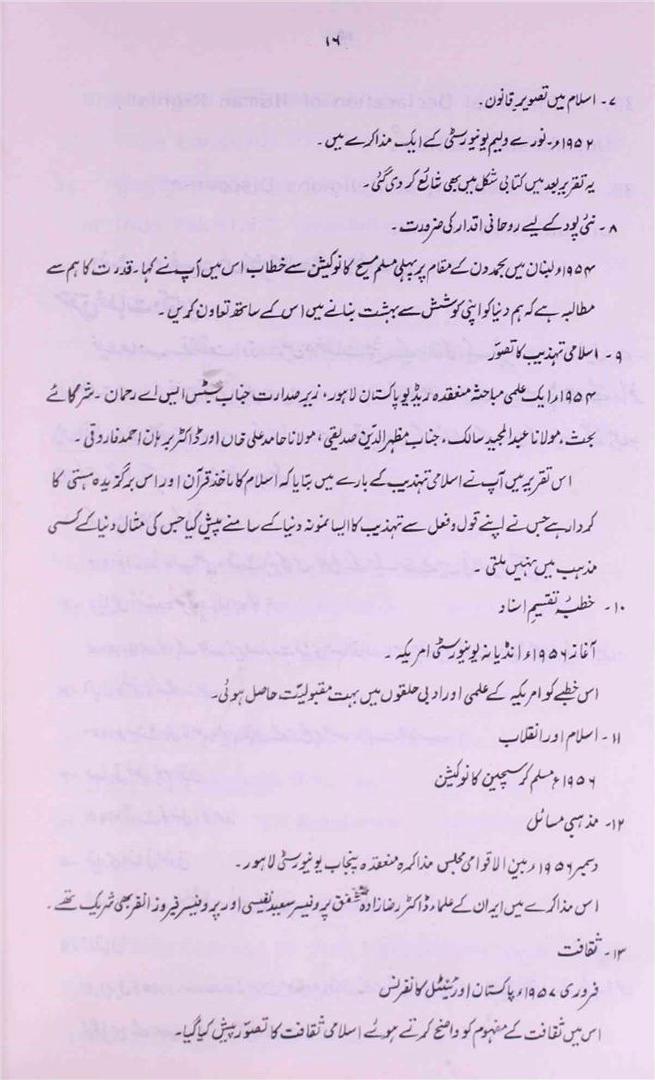 ۱۶
۷ - اسلام میں تصویرِ قانون ۔
۱۹۵۲ء - نورے ولیم یونیورسٹی کے ایک مذاکرے میں ۔
یہ تقریر بعد میں کتابی شکل میں بھی شائع کر دی گئی ۔
۸ - نئی پود کے لیے روحانی اقدار کی ضرورت ۔
۱۹۵۴ء لبنان میں بحمدون کے مقام پر پہلی مسلم مسیح کانوکیشن سے خطاب اس میں آپ نے کہا ۔ قدرت کا ہم سے
مطالبہ ہے کہ ہم دنیا کو اپنی کوشش سے بہشت بنانے میں اس کے ساتھ تعاون کریں ۔
۹ - اسلامی تہذیب کا تصوّر
۱۹۵۴ء ایک علمی مباحثہ منعقدہ ریڈیو پاکستان لاہور ، زیرِ صدارت جناب جسٹس ایس اے رحمان ۔ شرکائے
بحث ، مولانا عبدالمجید سالک ، جناب مظہر الدّین صدیقی ، مولانا حامد علی خاں اور ڈاکٹر برہان احمد فاروقی ۔
اس تقریر میں آپ نے اسلامی تہذیب کے بارے میں بتایا کہ اسلام کا ماخذ قرآن اور اس برگزیدہ ہستی کا
کردار ہے جس نے اپنے قول و فعل سے تہذیب کا ایسا نمونہ دنیا کے سامنے پیش کیا جس کی مثال دنیا کے کسی
مذہب میں نہیں ملتی ۔
۱۰ - خطبۂ تقسیمِ اسناد
آغاز ۱۹۵۶ء انڈیانہ یونیورسٹی امریکہ ۔
اس خطبے کو امریکہ کے علمی اور ادبی حلقوں میں بہت مقبولیّت حاصل ہوئی ۔
۱۱ - اسلام اور انقلاب
۱۹۵۶ء مسلم کرسچین کانوکیشن
۱۲ - مذہبی مسائل
دسمبر ۱۹۵۶ء بین الاقوامی مجلس مذاکرہ منعقدہ پنجاب یونیورسٹی لاہور ۔
اس مذاکرے میں ایران کے علماء ڈاکٹر رضا زادہ شفق پروفیسر سعید نفیسی اور پروفیسر فیروز انفر بھی شریک تھے ۔
۱۳ - ثقافت
فروری ۱۹۵۷ء پاکستان اورینٹل کانفرنس
اس میں ثقافت کے مفہوم کو واضح کرتے ہوئے اسلامی ثقافت کا تصوّر پیش کیا گیا ۔